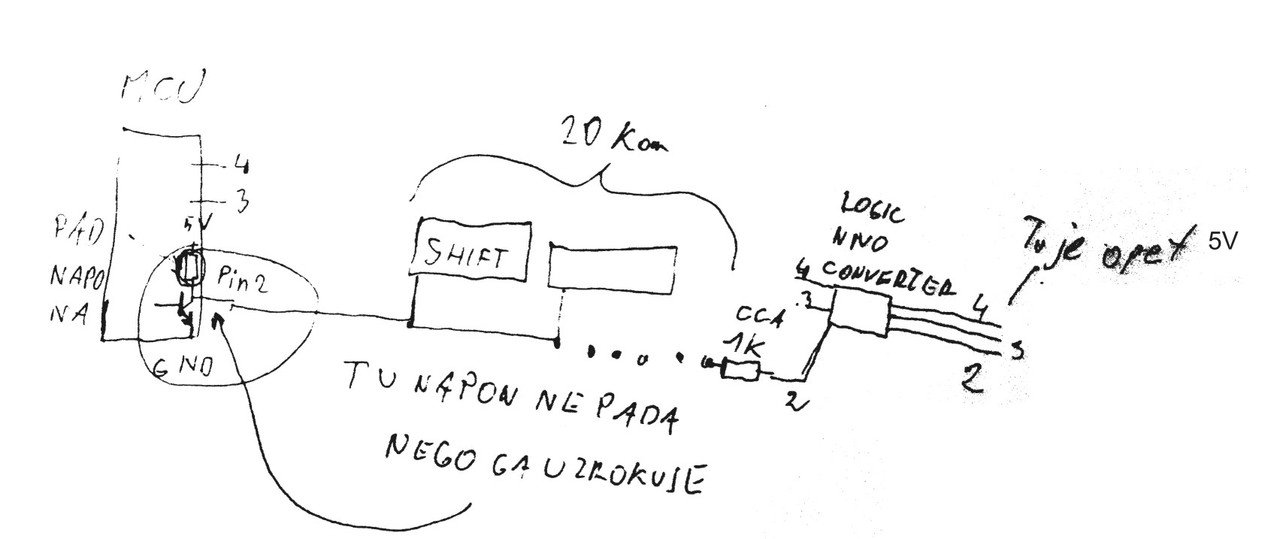 MCU
20 Kom
4
3
PAD
NAPO
NA
5V
Pin2
GND
SHIFT
LOGIC
NIVO
CONVERTER
4
3
CCA
1K
2
4
3
2
Tu je opet 5V
TU NAPON NE PADA
NEGO GA UZROKUJE